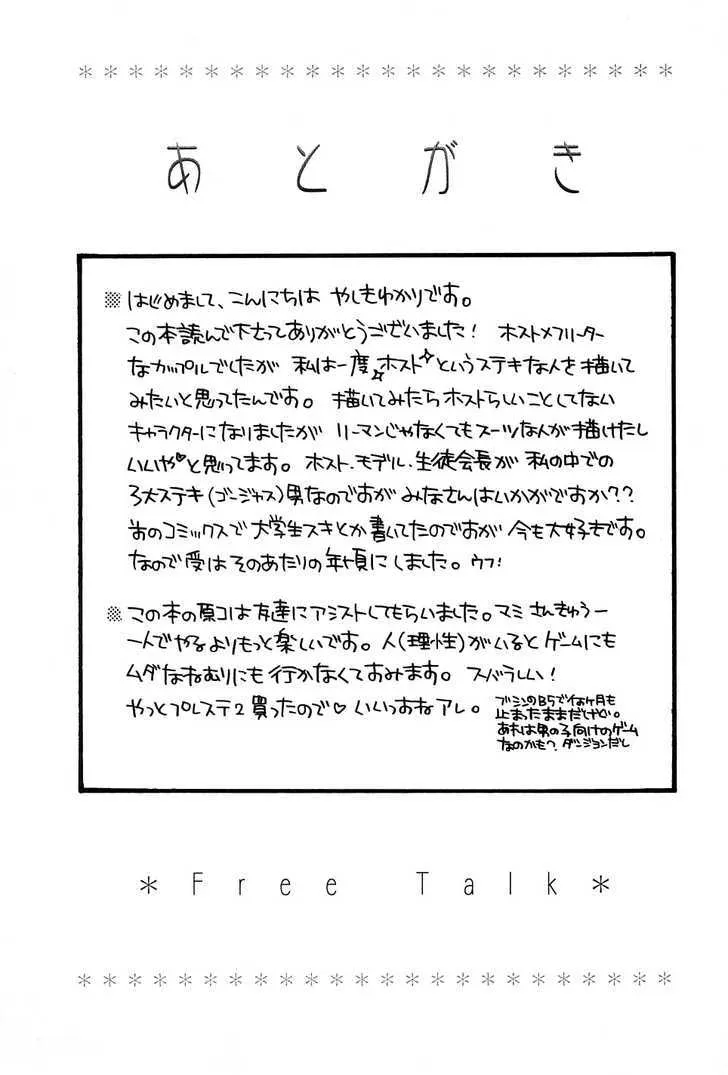 ＊＊＊＊＊＊＊＊＊＊＊＊＊＊＊＊＊＊＊＊＊＊＊＊
あとがき
※はじめまして、こんにちは やしもゆかりです。
この本読んで下さってありがとうございました! ホスト×フリーター
なカップルでしたが 私は一度☆ホスト☆というステキな人を描いて
みたいと思ってたんです。 描いてみたらホストらしいことしてない
キャラクターになりましたが リーマンじゃなくてもスーツな人が描けたし
いいや♡と思ってます。ホスト・モデル・生徒会長が 私の中での
3大ステキ(ゴージャス)男なのですが みなさんはいかがですか??
前のコミックスで 大学生スキとか書いてたのですが 今も大好きです。
なので受はそのあたりの年頃にしました。ウフ!
※この本の原コは友達にアシストしてもらいました。マミさんきゅうー
一人でやるよりもっと楽しいです。人(理性)がいるとゲームにも
ムダなねむりにも行かなくてすみます。スバラしい!
やっとプレステ2買ったので♡ いいっすねアレ。
止まったままだしやぁ。
あれは男の子向けのゲーム
なのかも? ダンジョンだし
＊Free Talk＊
＊＊＊＊＊＊＊＊＊＊＊＊＊＊＊＊＊＊＊＊＊＊＊＊